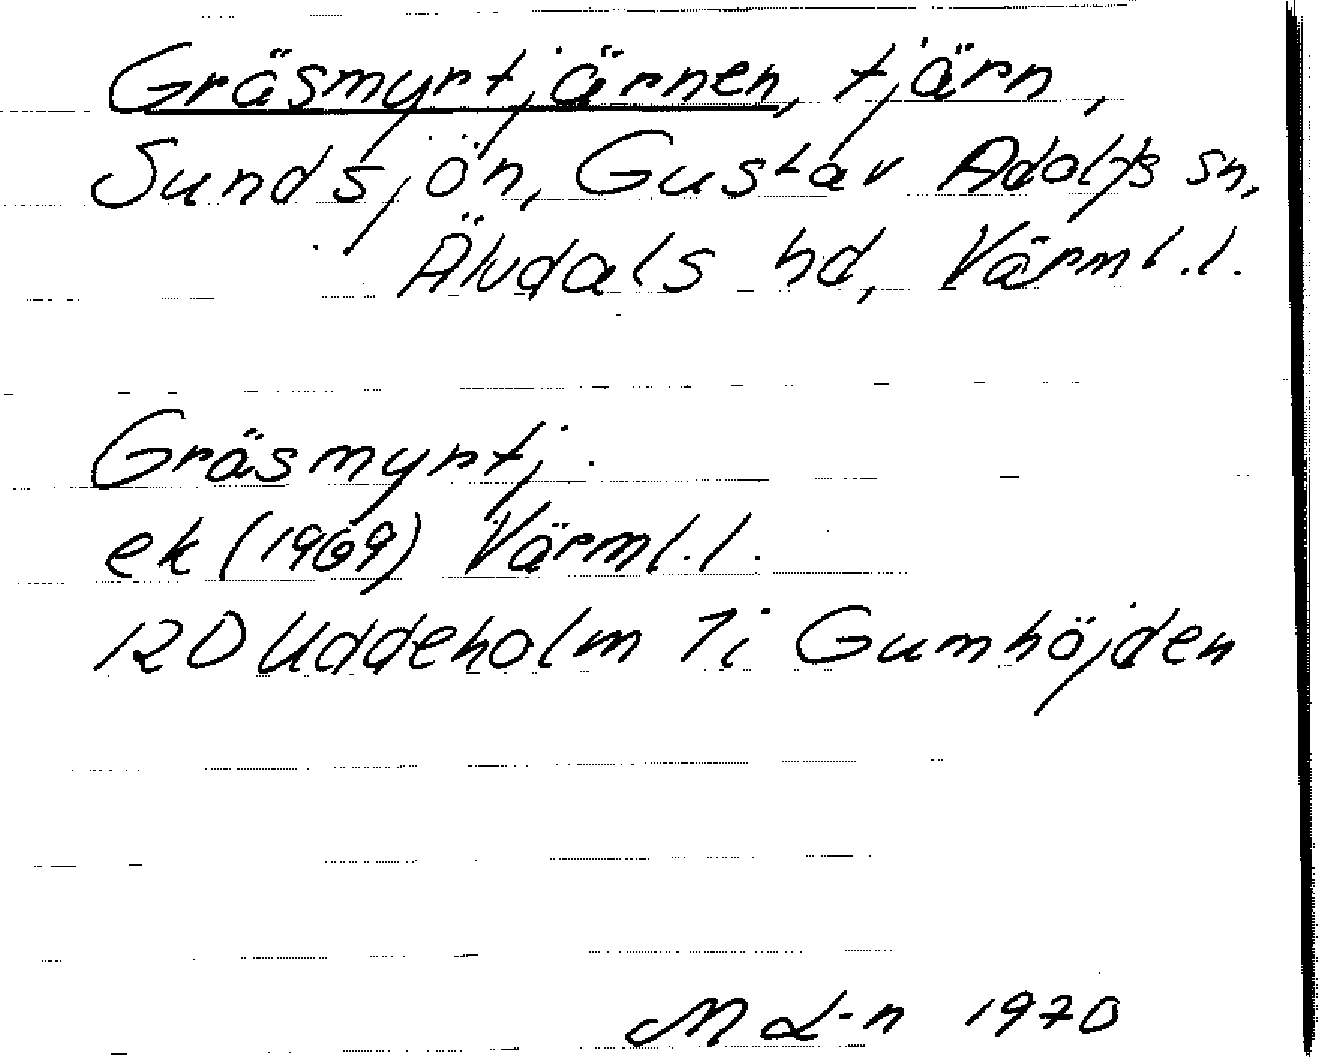 Gräsmyrtjärnen, tjärn,
Sundsjön, Gustav Adolfs sn,
Älvdals hd, Värml.l.
Gräsmyrtj.
ek (1969) Värml.l.
12D Uddeholm 7i Gumhöjden
M L-n 1970